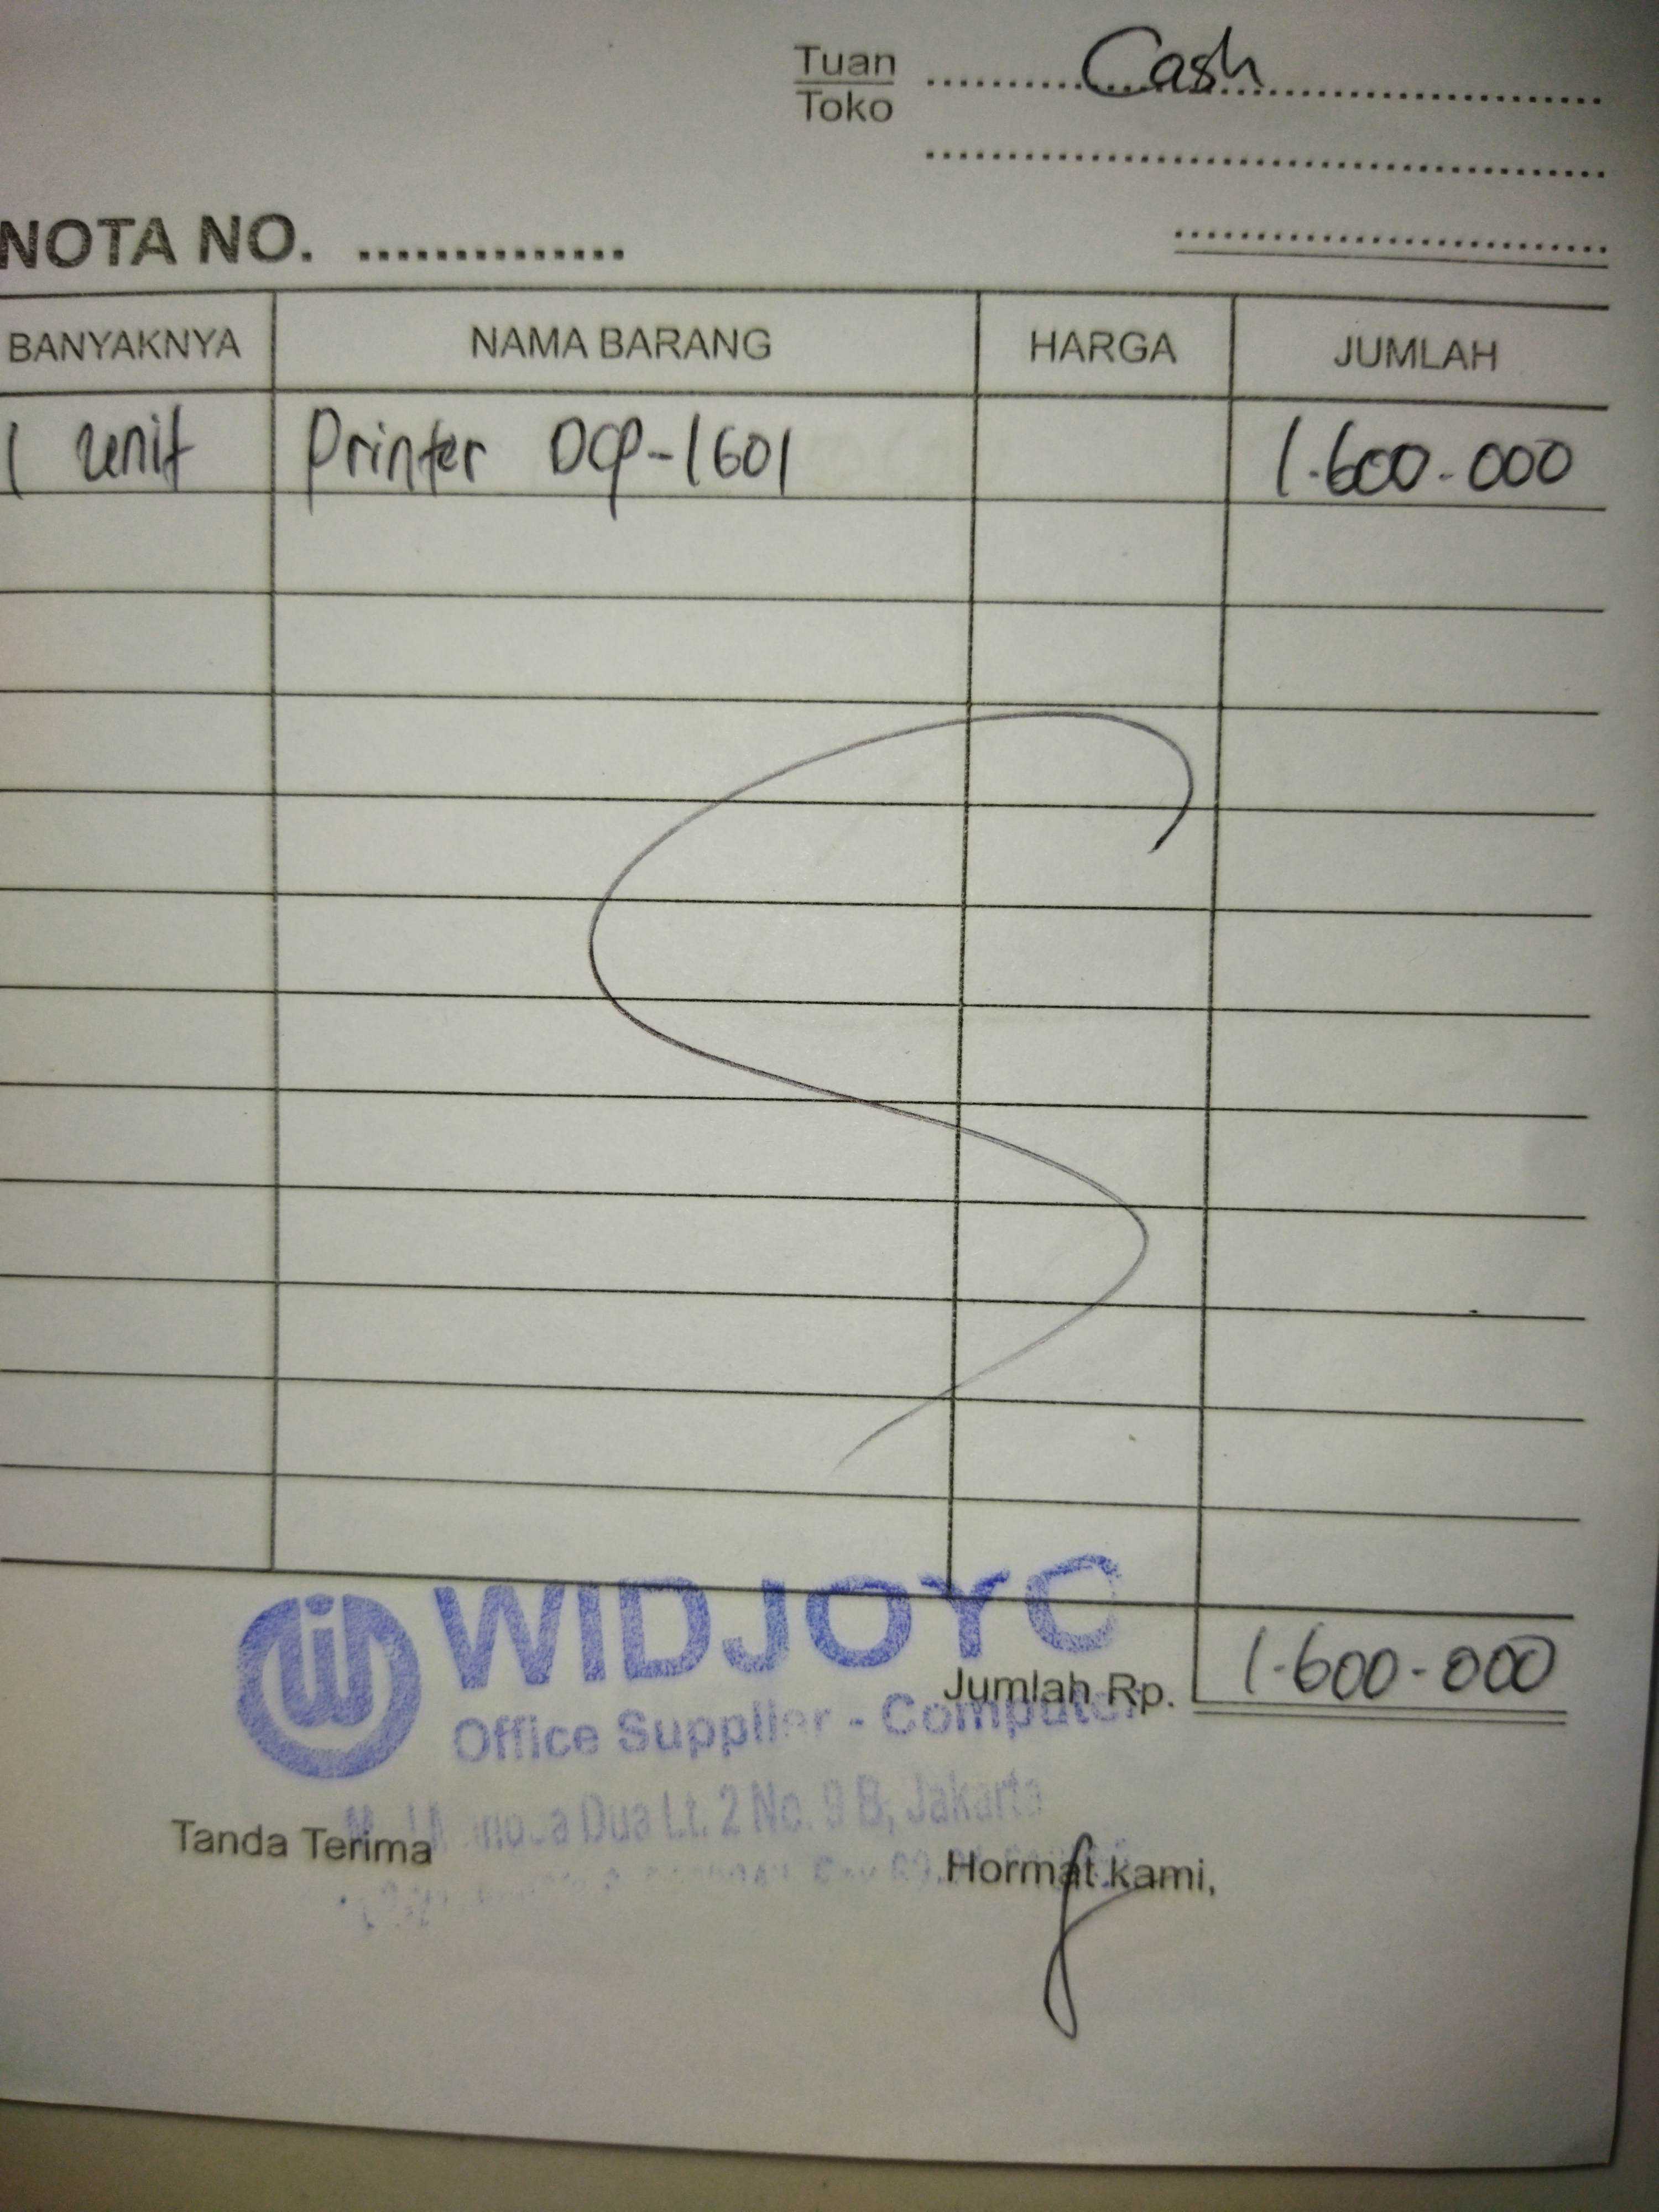 Tuan Cash
Toko
NOTA NO. ..............
BANYAKNYA NAMA BARANG HARGA JUMLAH
1 unit Printer DCP-1601 1.600.000
WIDJOYO
Jumlah Rp. 1.600.000
Office Supplier - Computer
Dua Lt. 2 No. 9 B, Jakarta
Tanda Terima
Hormat kami,